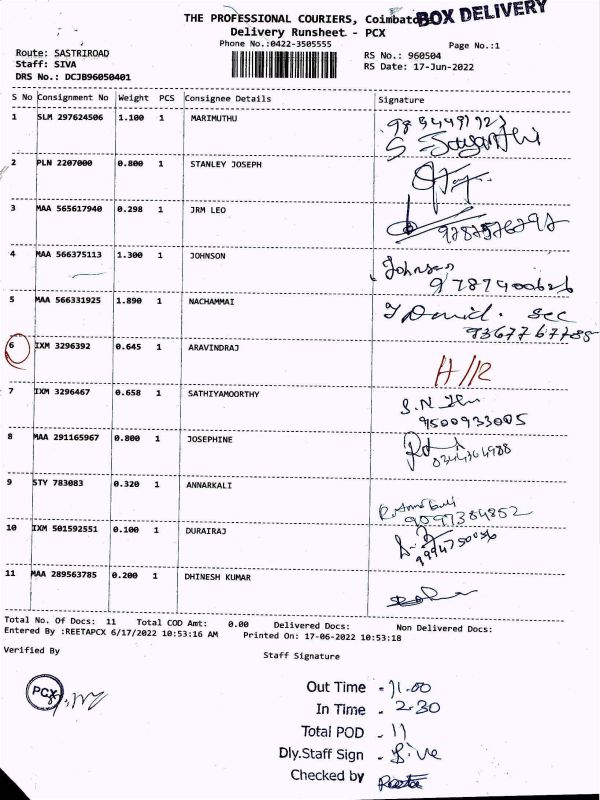 THE PROFESSIONAL COURIERS, Coimbatore
BOX DELIVERY
Delivery Runsheet - PCX
Phone No.:0422-3505555
Page No.:1
Route: SASTRIROAD
Staff: SIVA
DRS No.: DCJB96050401
RS No.: 960504
RS Date: 17-Jun-2022
S No Consignment No Weight PCS Consignee Details Signature
1 SLM 297624506 1.100 1 MARIMUTHU
2 PLN 2207000 0.800 1 STANLEY JOSEPH
3 MAA 565617940 0.298 1 JRM LEO
4 MAA 566375113 1.300 1 JOHNSON Johnson
9787400626
5 MAA 566331925 1.890 1 NACHAMMAI
6 IXM 3296392 0.645 1 ARAVINDRAJ
7 IXM 3296467 0.658 1 SATHIYAMOORTHY
9500933005
8 MAA 291165967 0.800 1 JOSEPHINE
9 STY 783083 0.320 1 ANNARKALI
9097384852
10 IXM 501592551 0.100 1 DURAIRAJ
11 MAA 289563785 0.200 1 DHINESH KUMAR
Total No. Of Docs: 11 Total COD Amt: 0.00 Delivered Docs: Non Delivered Docs:
Entered By :REETAPCX 6/17/2022 10:53:16 AM Printed On: 17-06-2022 10:53:18
Verified By Staff Signature
PCX
Out Time - 11.00
In Time - 2.30
Total POD - 11
Dly.Staff Sign - Siva
Checked by